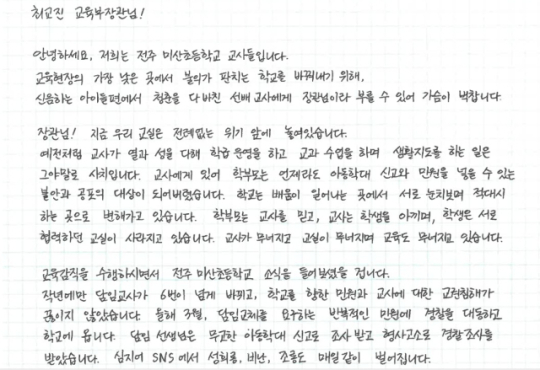 최교진 교육부장관님!
안녕하세요, 저희는 전주 미산초등학교 교사들입니다.
교육현장의 가장 낮은 곳에서 불의가 판치는 학교를 바꿔내기 위해,
신음하는 아이들편에서 청춘을 다 바친 선배 교사에게 장관님이라 부를 수 있어 가슴이 벅찹니다.
장관님! 지금 우리 교실은 전례없는 위기 앞에 놓여있습니다.
예전처럼 교사가 열과 성을 다해 학급 운영을 하고 교과 수업을 하며 생활지도를 하는 일은
그야말로 사치입니다. 교사에게 있어 학부모는 언제라도 아동학대 신고와 민원을 넣을 수 있는
불안과 공포의 대상이 되어버렸습니다. 학교는 배움이 일어나는 곳에서 서로 눈치보며 적대시
하는 곳으로 변해가고 있습니다. 학부모는 교사를 믿고, 교사는 학생을 아끼며, 학생은 서로
협력하던 교실이 사라지고 있습니다. 교사가 무너지고 교실이 무너지며 교육도 무너지고 있습니다.
교육감직을 수행하시면서 전주 미산초등학교 소식을 들어보셨을 겁니다.
작년에만 담임교사가 6번이 넘게 바뀌고, 학교를 향한 민원과 교사에 대한 교권침해가
끊이지 않았습니다. 올해 3월, 담임교체를 요구하는 반복적인 민원에 경찰을 대동하고
학교에 옵니다. 담임 선생님은 무고한 아동학대 신고로 조사 받고 형사고소로 경찰조사를
받았습니다. 심지어 SNS에서 성희롱, 비난, 조롱도 매일같이 벌어집니다.